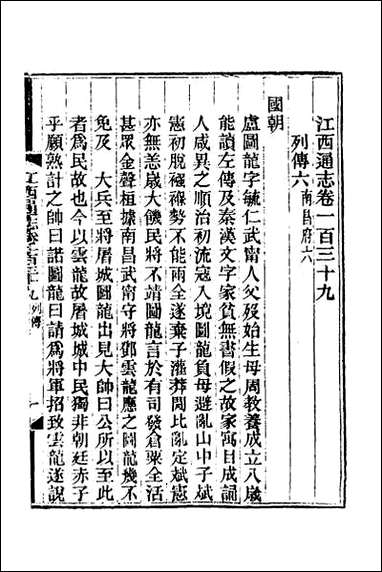 江西通志卷一百三十九
列傳六南昌府六
國朝
盧圖龍字毓仁武甯人父歿始生母周教養成立八歲
能讀左傳及秦漢文字家貧無書假之故家寓目成誦
人咸異之順治初流寇入境圖龍負母避亂山中子斌
憲初脫襁褓勢不能兩全遂棄子灌莽閒比亂定斌憲
亦無恙歲大饑民將不靖圖龍言於有司發倉粟全活
甚眾金聲桓據南昌武甯守將鄧雲龍應之圖龍幾不
免及　大兵至將屠城圖龍出見大帥曰公所以至此
者爲民故也今以雲龍故屠城城中民獨非朝廷赤子
乎願熟計之帥曰諾圖龍曰請爲將軍招致雲龍遂說
江西通志卷一百三十九列傳
一